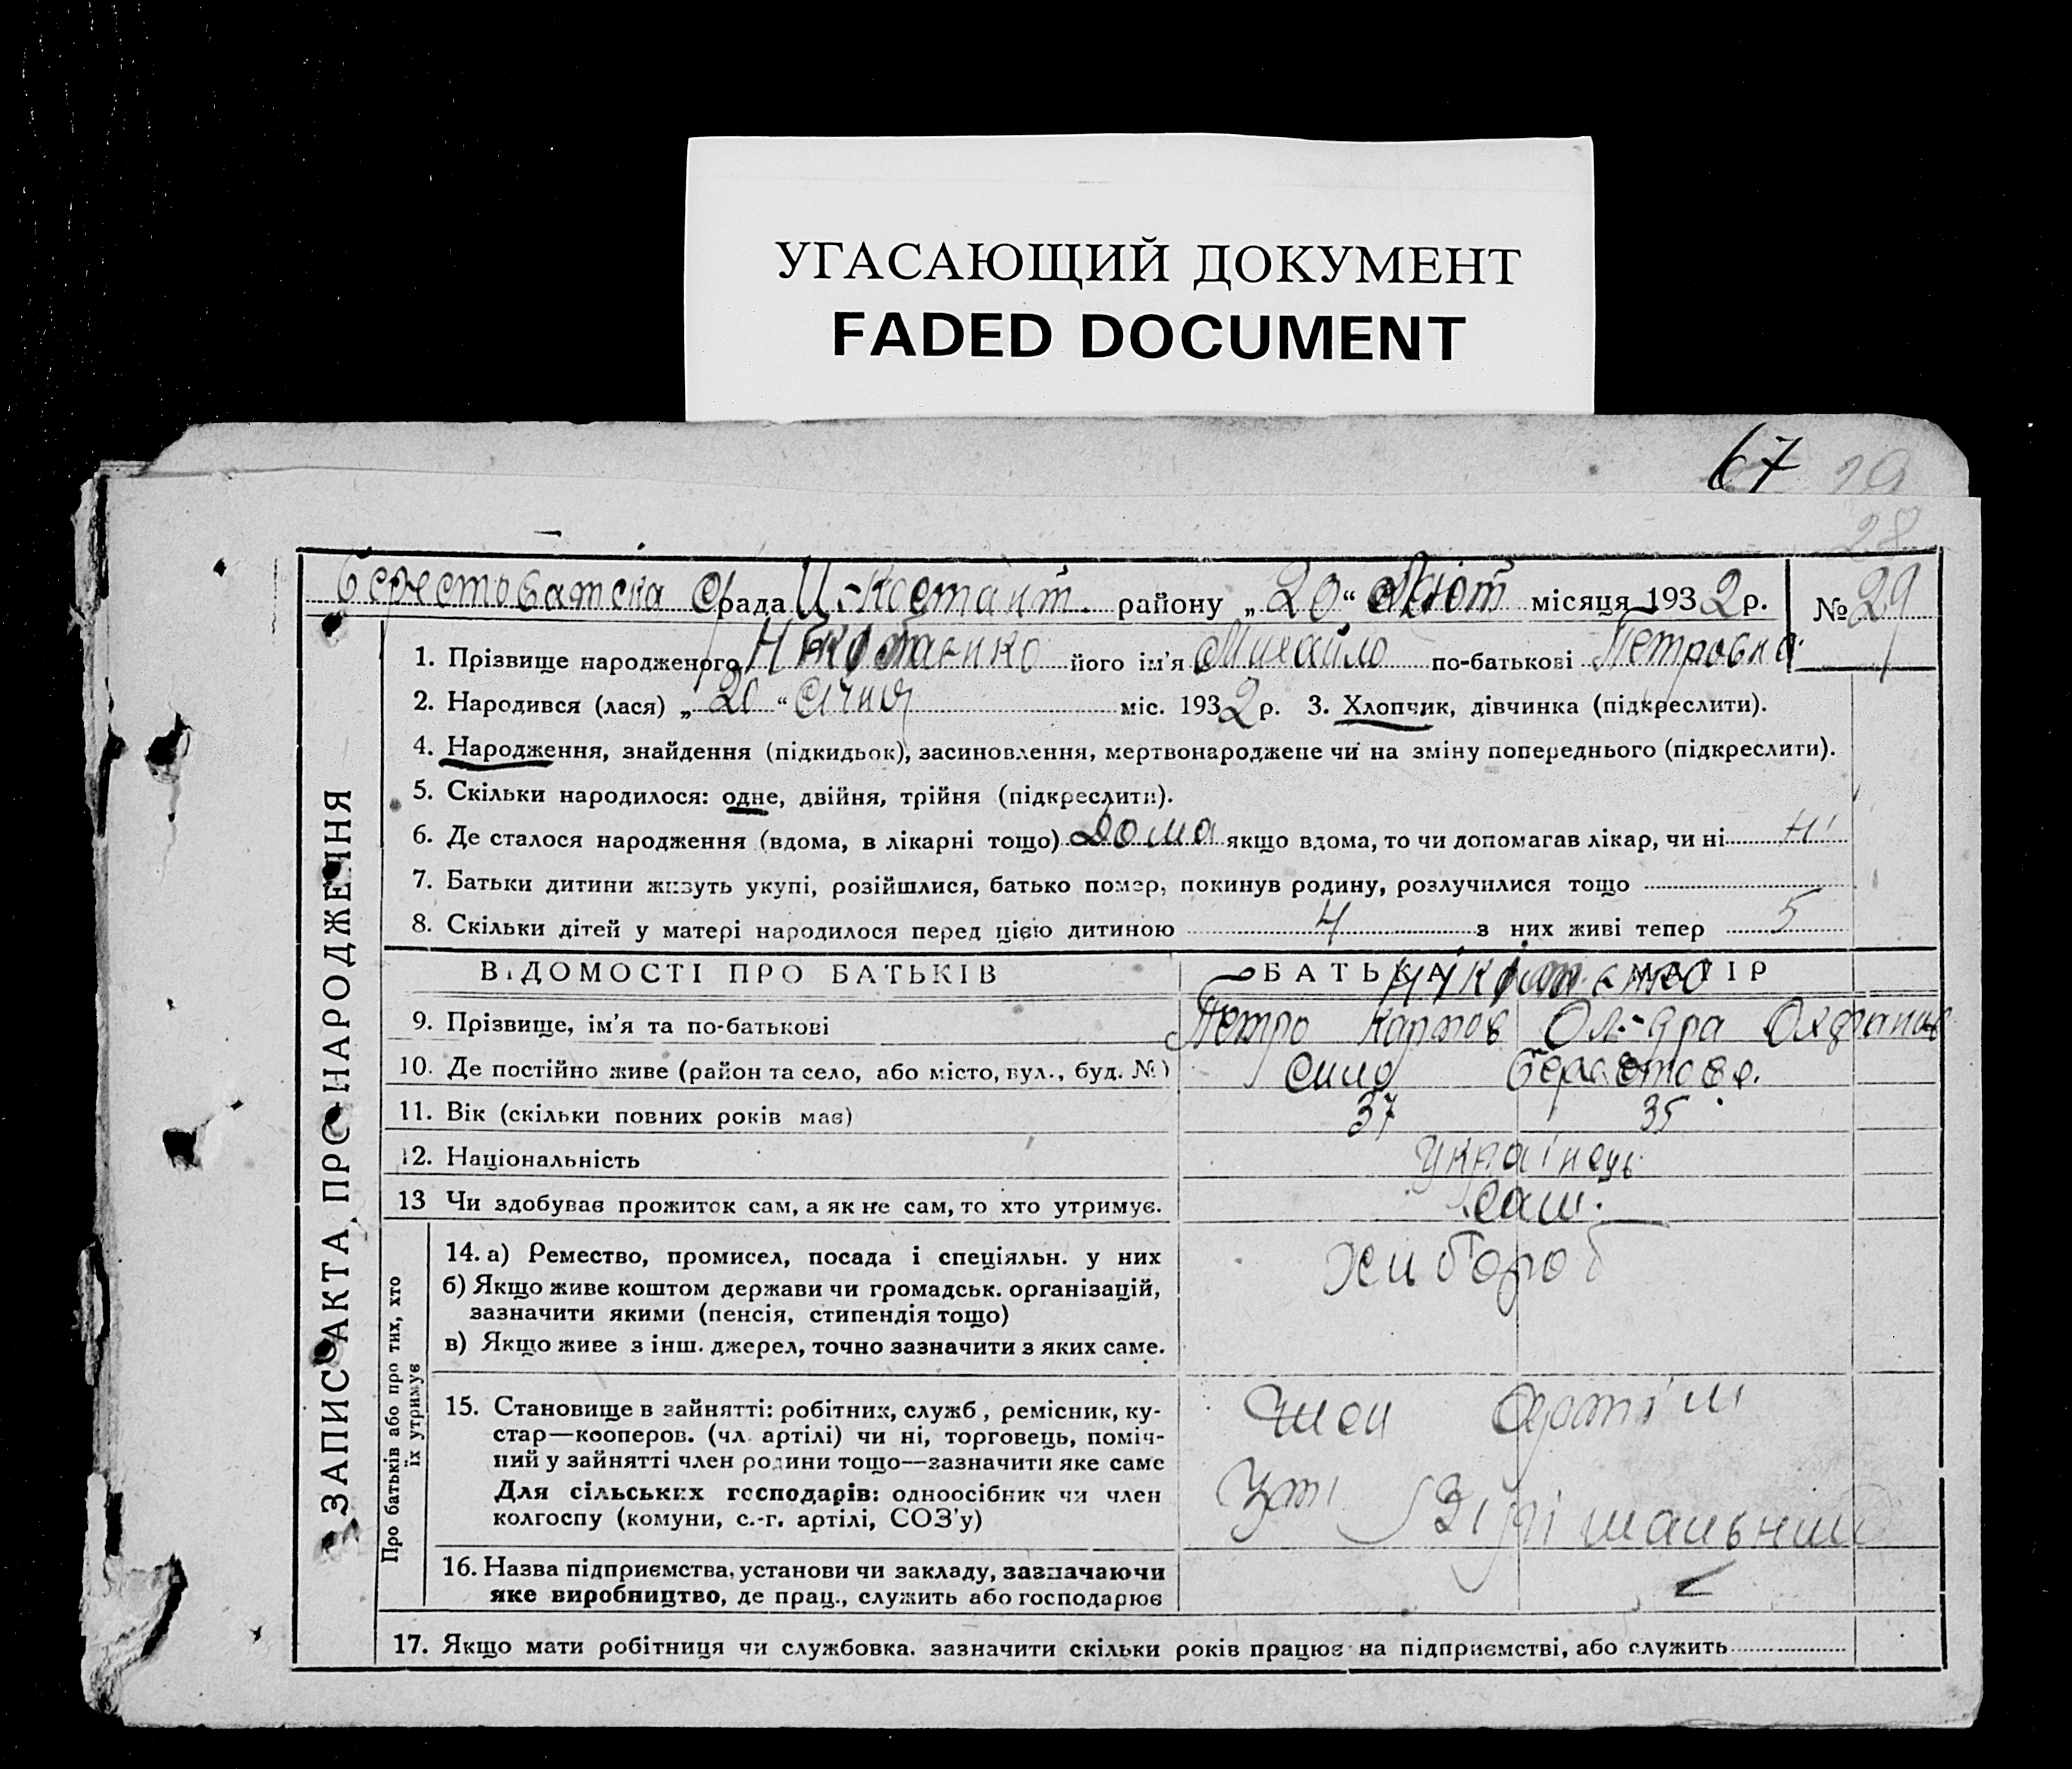 УГАСАЮЩИЙ ДОКУМЕНТ
FADED DOCUMENT
67 29
28
Берестоватска С/рада району „20“ Лют місяця 1932 р. № 29
1. Прізвище народженого його ім'я Михайло по-батькові Петрович
2. Народився (лася) „20“ Січня міс. 1932 р. 3. Хлопчик, дівчинка (підкреслити).
4. Народження, знайдення (підкидьок), засиновлення, мертвонароджене чи на зміну попереднього (підкреслити).
5. Скільки народилося: одне, двійня, трійня (підкреслити).
6. Де сталося народження (вдома, в лікарні тощо) Дома якщо вдома, то чи допомагав лікар, чи ні ні
7. Батьки дитини живуть укупі, розійшлися, батько помер, покинув родину, розлучилися тощо
8. Скільки дітей у матері народилося перед цією дитиною 4 з них живі тепер 5
ВІДОМОСТІ ПРО БАТЬКІВ БАТЬКА МАТІР
9. Прізвище, ім'я та по-батькові Петро Карпов Ол-дра
10. Де постійно живе (район та село, або місто, вул., буд. №) Село Берестове.
11. Вік (скільки повних років має) 37 35
12. Національність Українець
13 Чи здобуває прожиток сам, а як не сам, то хто утримує. Сам.
14. а) Ремество, промисел, посада і спеціяльн. у них Хлібороб
б) Якщо живе коштом держави чи громадськ. організацій,
зазначити якими (пенсія, стипендія тощо)
в) Якщо живе з інш. джерел, точно зазначити з яких саме.
15. Становище в зайнятті: робітник, служб., ремісник, ку-
стар—кооперов. (чл. артілі) чи ні, торговець, поміч-
ний у зайнятті член родини тощо—зазначити яке саме
Для сільських господарів: одноосібник чи член
колгоспу (комуни, с.-г. артілі, СОЗ'у)
Член Артілі
16. Назва підприємства, установи чи закладу, зазначаючи
яке виробництво, де прац., служить або господарює
17. Якщо мати робітниця чи службовка. зазначити скільки років працює на підприємстві, або служить
ЗАПИС АКТА ПРО НАРОДЖЕННЯ
Про батьків або про тих, хто
їх утримує